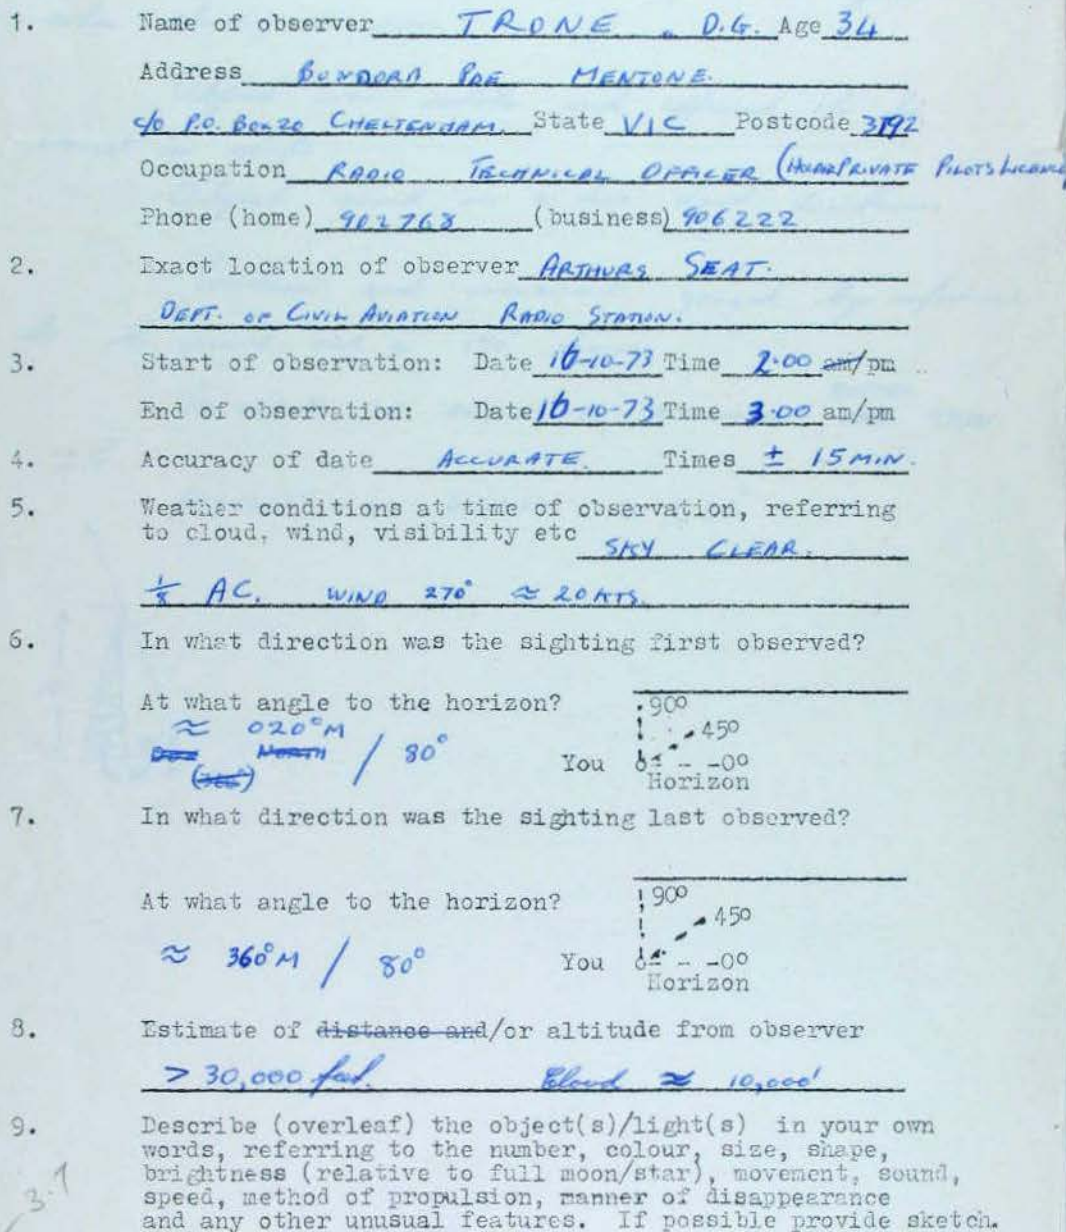 1. Name of observer TRONE . D.G. Age 34
Address BUNDORA PDE MENTONE.
c/o P.O. Box 20 CHELTENHAM. State VIC Postcode 3192
Occupation RADIO TECHNICAL OFFICER (HOLDS PRIVATE PILOTS LICENCE
Phone (home) 902768 (business) 906222
2. Exact location of observer ARTHURS SEAT.
DEPT. OF CIVIL AVIATION RADIO STATION.
3. Start of observation: Date 16-10-73 Time 2.00 am/pm
End of observation: Date 16-10-73 Time 3.00 am/pm
4. Accuracy of date ACCURATE. Times ± 15 MIN.
5. Weather conditions at time of observation, referring
to cloud, wind, visibility etc SKY CLEAR.
1/8 AC. WIND 270° ≈ 20 KTS.
6. In what direction was the sighting first observed?
At what angle to the horizon? 90°
≈ 020°M 45°
Due North / 80° You -0°
Horizon
7. In what direction was the sighting last observed?
At what angle to the horizon? 90°
45°
≈ 360°M / 80° You -0°
Horizon
8. Estimate of distance and/or altitude from observer
> 30,000 feet. Cloud ≈ 10,000'
9. Describe (overleaf) the object(s)/light(s) in your own
words, referring to the number, colour, size, shape,
brightness (relative to full moon/star), movement, sound,
speed, method of propulsion, manner of disappearance
and any other unusual features. If possible provide sketch.